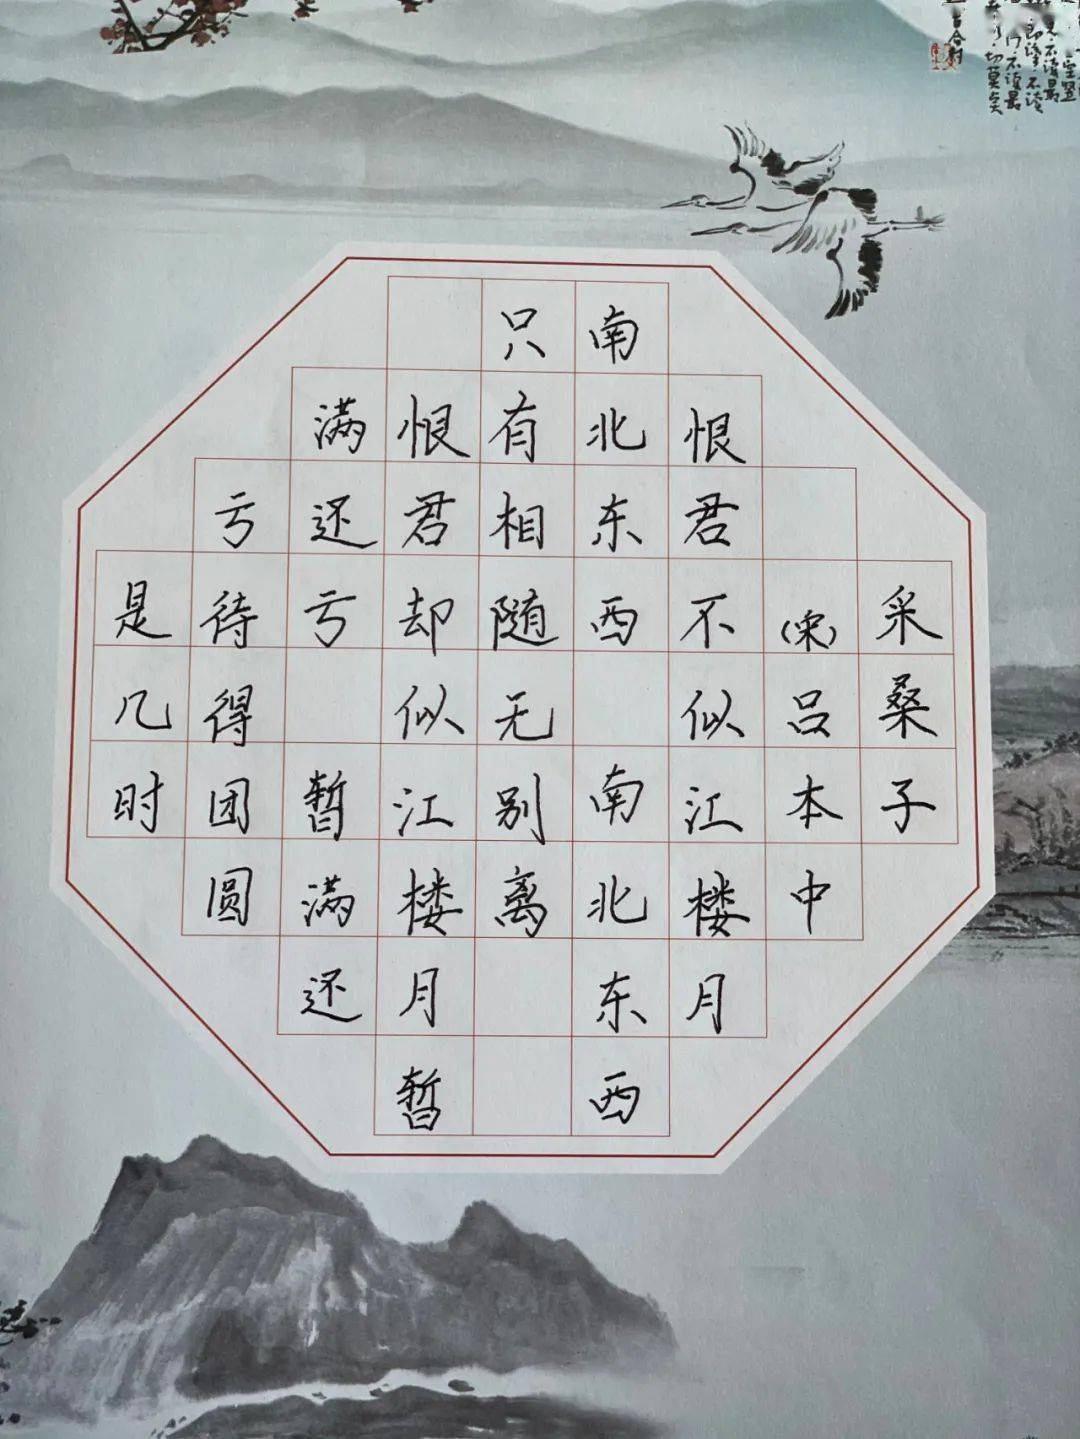 采桑子
（宋）吕本中
恨君不似江楼月
南北东西 南北东西
只有相随无别离
恨君却似江楼月暂
满还亏 暂满还
亏待得团圆
是几时